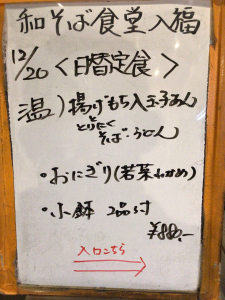 和そば食堂入福
12/20 <日替定食>
温) 揚げもち入玉子あん
とりにく
そば・うどん
・おにぎり(若菜わかめ)
・小鉢 2品付
¥880.-
入口こちら